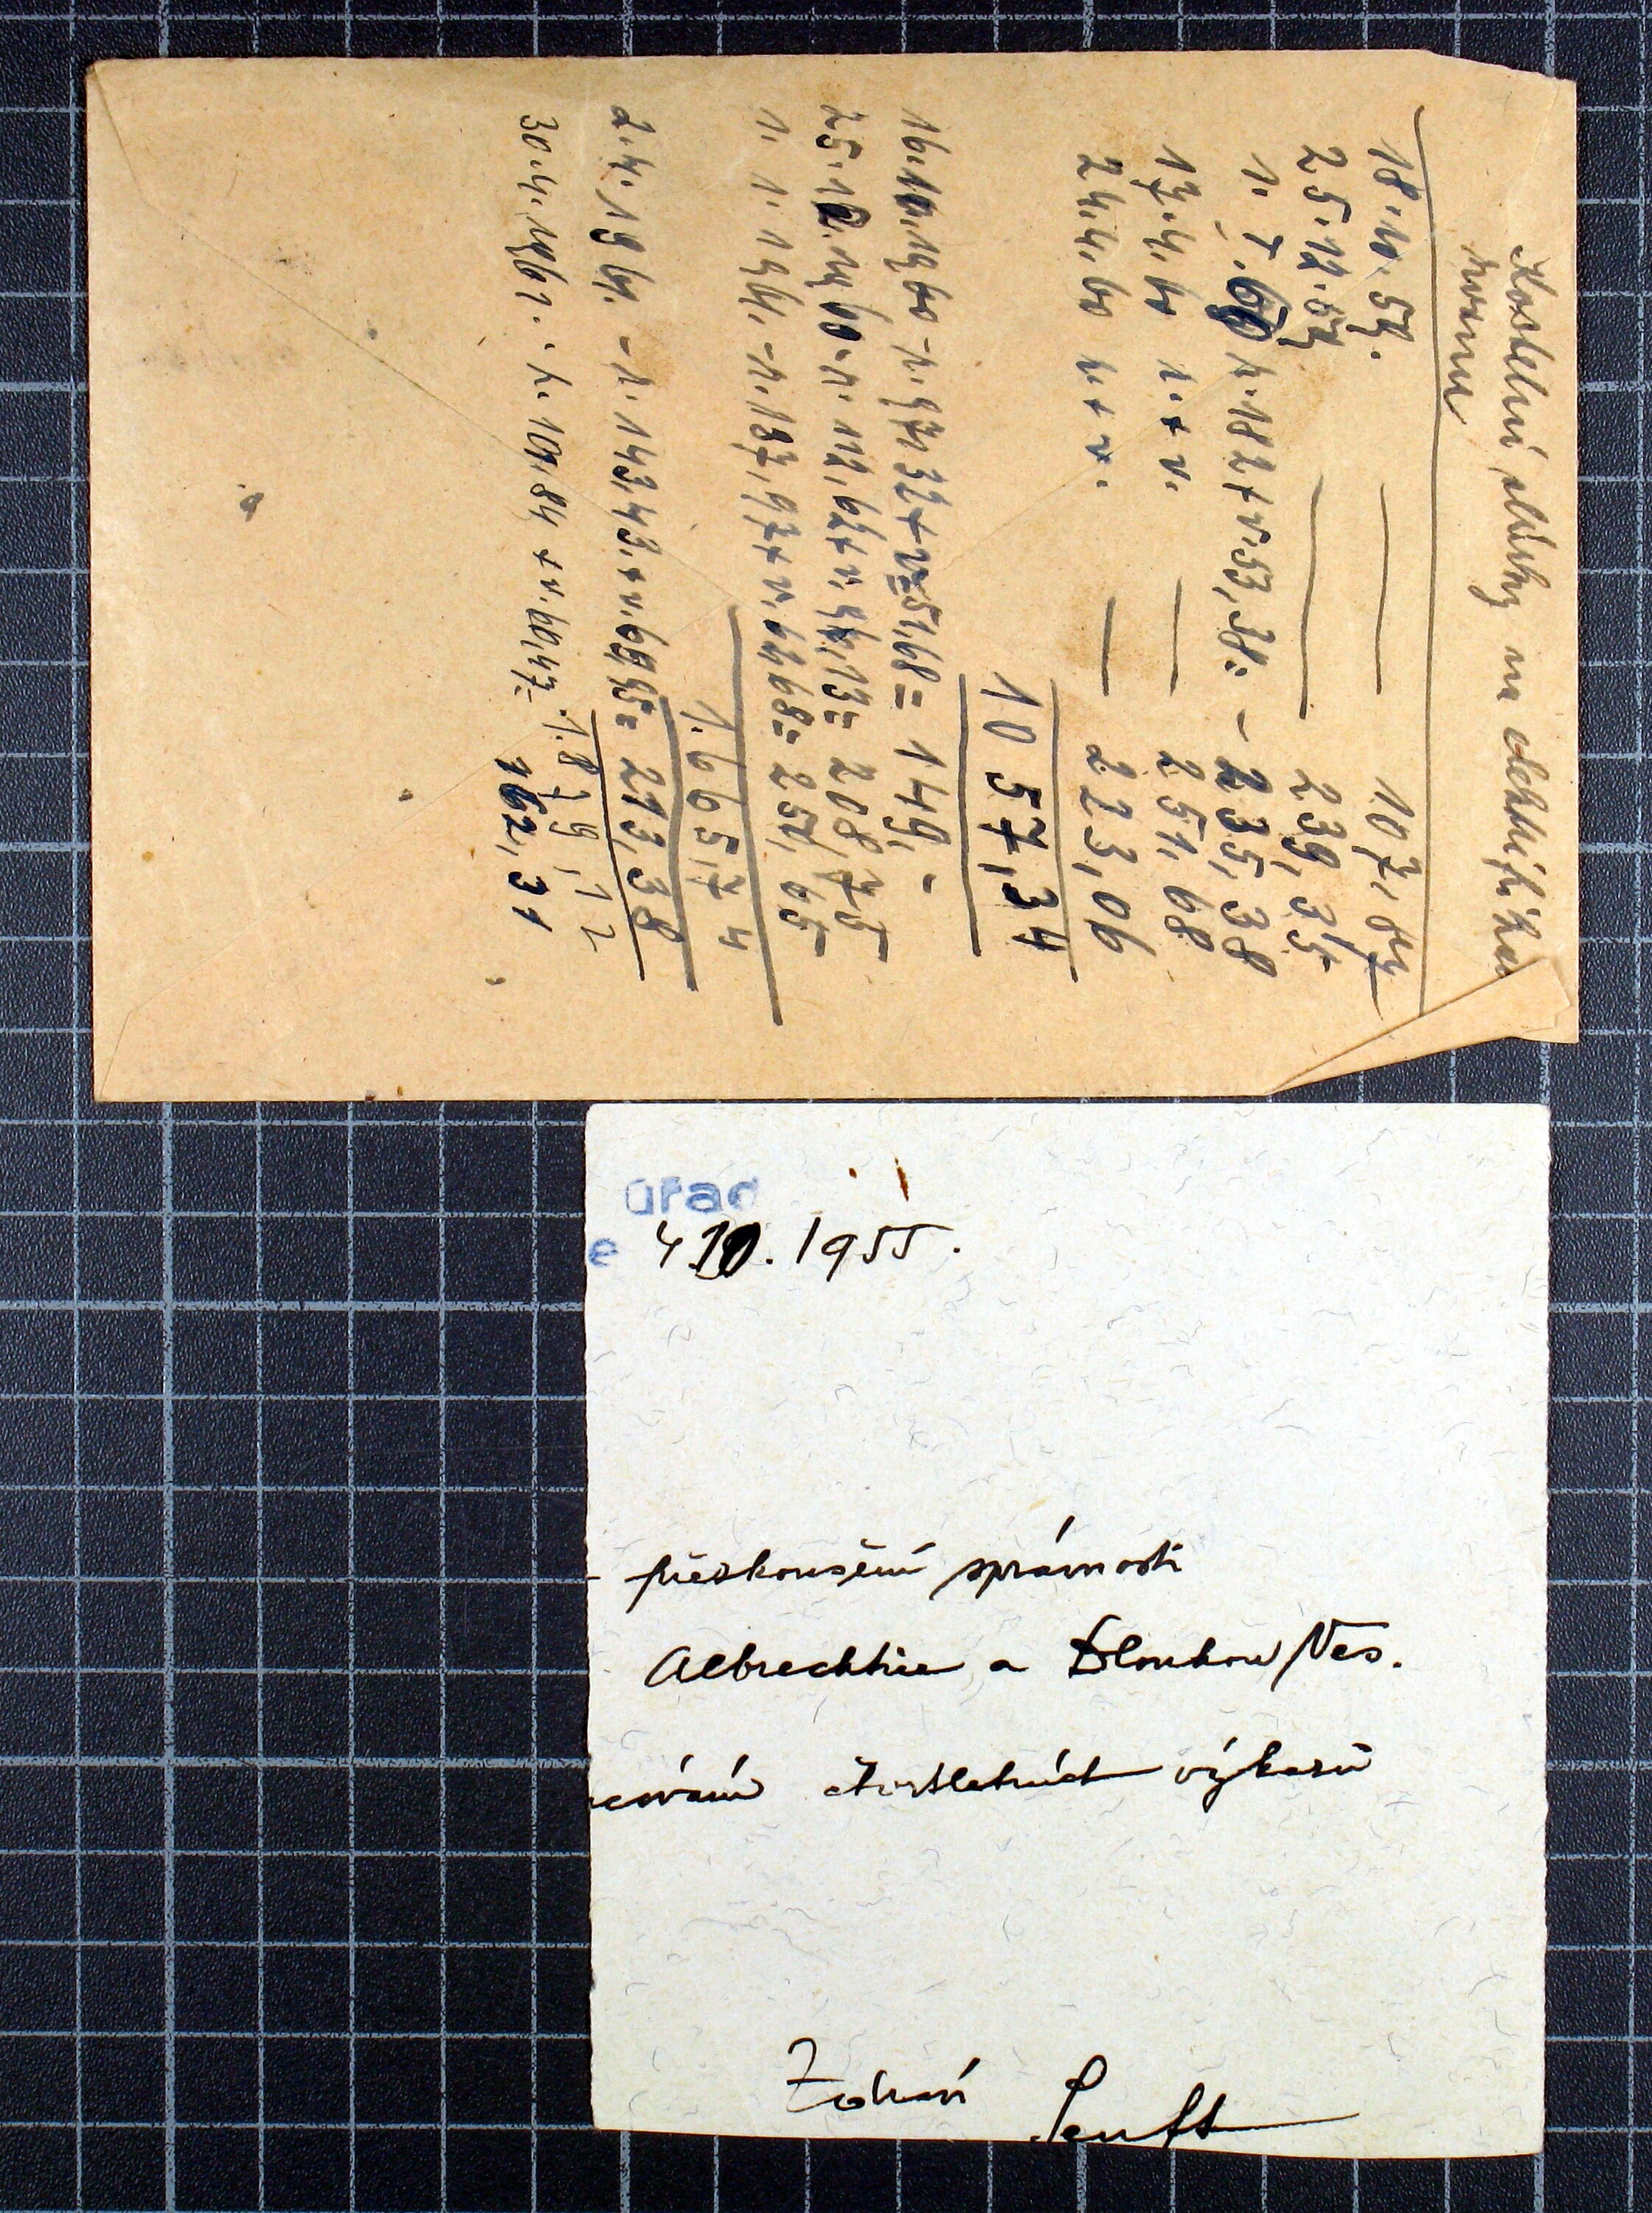 Kostelní sbírky na elektrifikaci
18.10.59. — 107,87
25.12.59 — 239,35
1. 1. 60 k. 182 + v. 53,38. - 235,38
17.4.60 k. + v. — 251,68
24.4.60 k. + v. — 223,06
1057,34
16.10.1960 - k. 97,32 + v. 51,68 = 149,-
25.12.1960 - k. 112,62 + v. 96,13 = 208,75
1. 1. 1961. - k. 187,97 + v. 62,68 = 250,65
1.665,74
2.4.1961. - k. 143,43. + v. 69,95 = 213,38
1.879,12
30.4.1967. - k. 101,84 + v. 60,47 = 162,31
úřad
e 4.10.1955.
- přezkoušení správnosti
Albrechtice a Dlouhou Ves.
cování čtvrtletních výkazů
Zdraví Senft